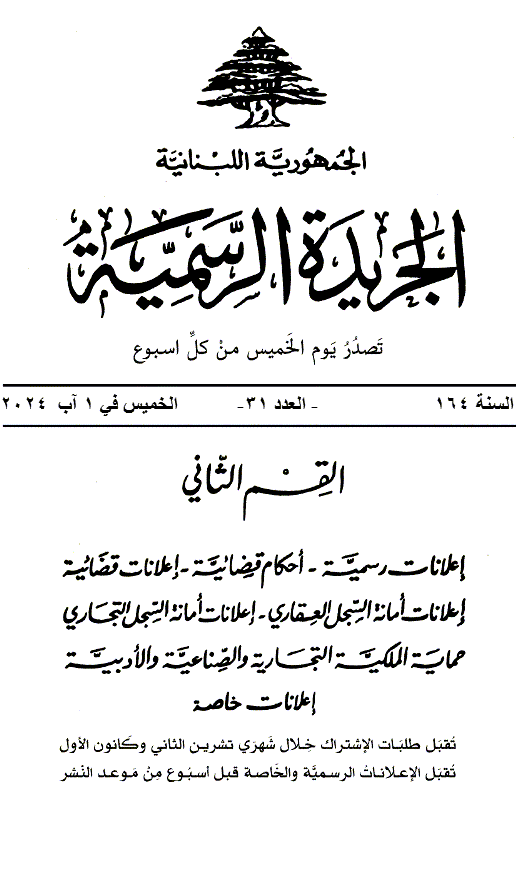 الجمهوريَّة اللبنانيَّة
الجَريدَة الرسَّميَّة
تَصدُرُ يَوم الخَميس منْ كلِّ اسبوع
السنة ١٦٤ - العدد ٣١- الخميس في ١ آب ٢٠٢٤
القِسْم الثّاني
إعلانات رسميَّة - أحكام قضائيَّة - إعلانات قضائية
إعلانات أمانة السِّجل العِقاري - إعلانات أمانة السِّجل التجاري
حماية الملكيَّة التجارية والصِّناعيَّة والأدبيَّة
إعلانات خاصة
تُقبَل طلبَات الإشتراك خلال شَهرَي تشرين الثاني وكَانون الأول
تُقبَل الإعلاناتُ الرسميَّة والخَاصة قبل أسبُوع مِنْ مَوعد النَشر